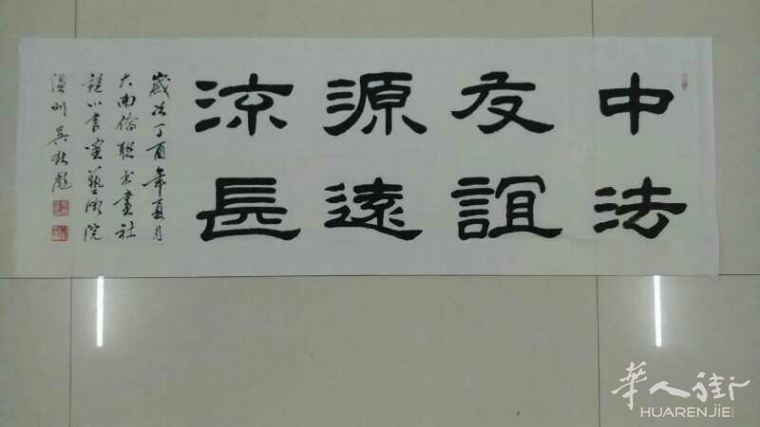 中法
友誼
源遠
流長
歲次丁酉年夏月
大南僑聯书畫社
书畫藝術院
温州吴
華人街
HUARENJIE